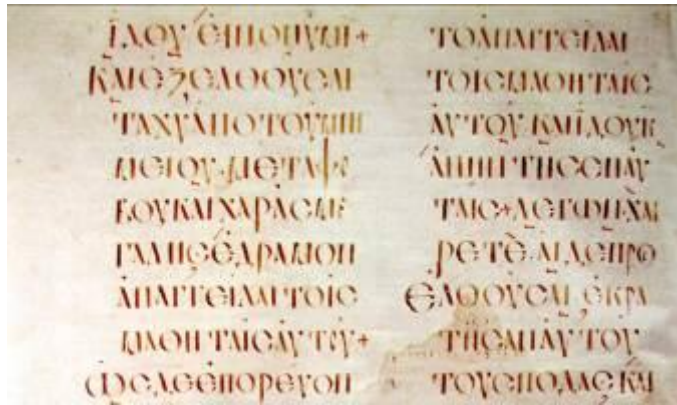 ΙΔΟΥ ΕΙΠΟΝ ΥΜΙΝ+
ΚΑΙ ΕΞΕΛΘΟΥΣΑΙ
ΤΑΧΥ ΑΠΟ ΤΟΥ ΜΝΗ
ΜΕΙΟΥ· ΜΕΤΑ ΦΟ
ΒΟΥ ΚΑΙ ΧΑΡΑΣ ΜΕ
ΓΑΛΗΣ ΕΔΡΑΜΟΝ
ΑΠΑΓΓΕΙΛΑΙ ΤΟΙΣ
ΜΑΘΗΤΑΙΣ ΑΥΤΟΥ+
ΩΣ ΔΕ ΕΠΟΡΕΥΟΝ
ΤΟ ΑΠΑΓΓΕΙΛΑΙ
ΤΟΙΣ ΜΑΘΗΤΑΙΣ
ΑΥΤΟΥ ΚΑΙ ΙΔΟΥ
ΑΠΗΝΤΗΣΕΝ ΑΥ
ΤΑΙΣ+ ΛΕΓΩΝ· ΧΑΙ
ΡΕΤΕ· ΑΙ ΔΕ ΠΡΟ
ΕΛΘΟΥΣΑΙ ΕΚΡΑ
ΤΗΣΑΝ ΑΥΤΟΥ
ΤΟΥΣ ΠΟΔΑΣ ΚΑΙ